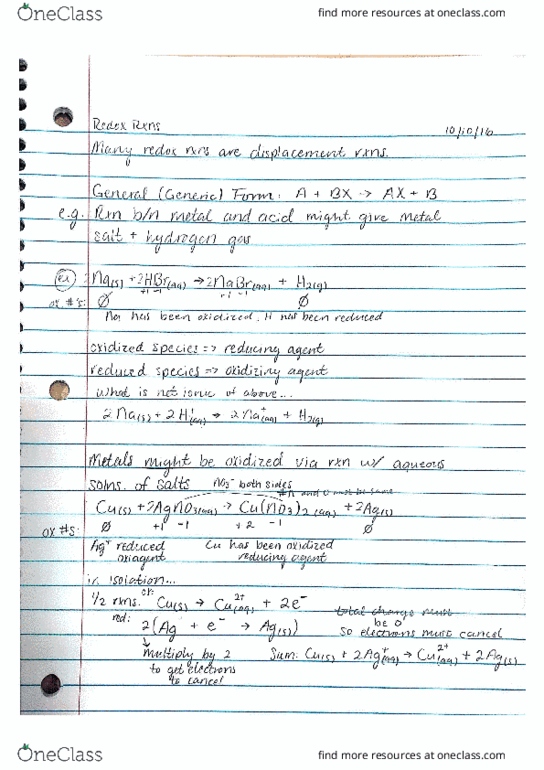 OneClass find more resources at oneclass.com
Redox Rxns 10/10/16
Many redox rxns are displacement rxns.
General (Generic) Form: A + BX → AX + B
e.g. Rxn b/n metal and acid might give metal
salt + hydrogen gas
ex 2Na(s) + 2HBr(aq) → 2NaBr(aq) + H2(g)
+1 -1 +1 -1
ox #s: Ø Ø
Na has been oxidized, H has been reduced
oxidized species => reducing agent
reduced species => oxidizing agent
What is net ionic of above...
2Na(s) + 2H+(aq) → 2Na+(aq) + H2(g)
Metals might be oxidized via rxn w/ aqueous
solns. of salts NO3- both sides
#N and O must be same
Cu(s) + 2AgNO3(aq) → Cu(NO3)2(aq) + 2Ag(s)
ox #s: Ø +1 -1 +2 -1 Ø
Ag+ reduced Cu has been oxidized
oxiagent reducing agent
in isolation...
1/2 rxns. ox: Cu(s) → Cu2+(aq) + 2e- total charge must
be 0
red: 2(Ag + e- → Ag(s)) so electrons must cancel
↓
multiply by 2 Sum: Cu(s) + 2Ag+(aq) → Cu2+(aq) + 2Ag(s)
to get electrons
to cancel
OneClass find more resources at oneclass.com